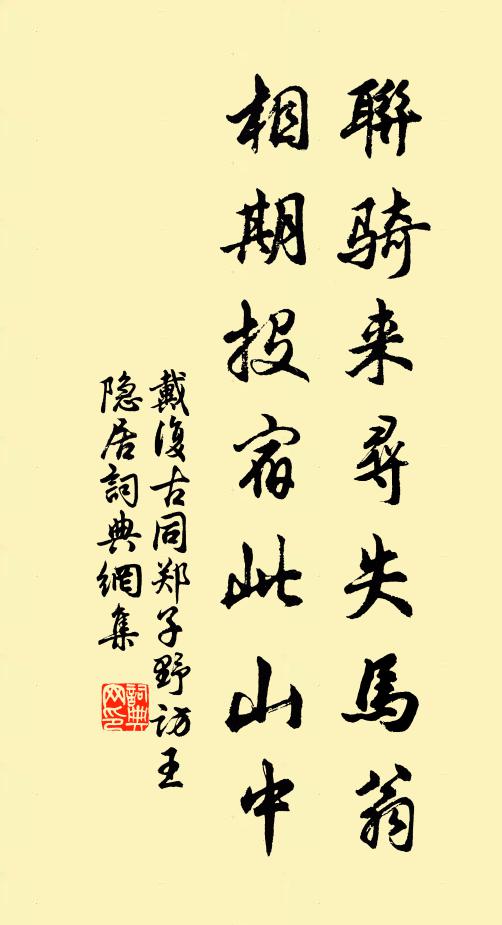 聯骑来尋失馬翁
相期投宿此山中
戴復古同郑子野访王
隐居詞典網集
詞典网印